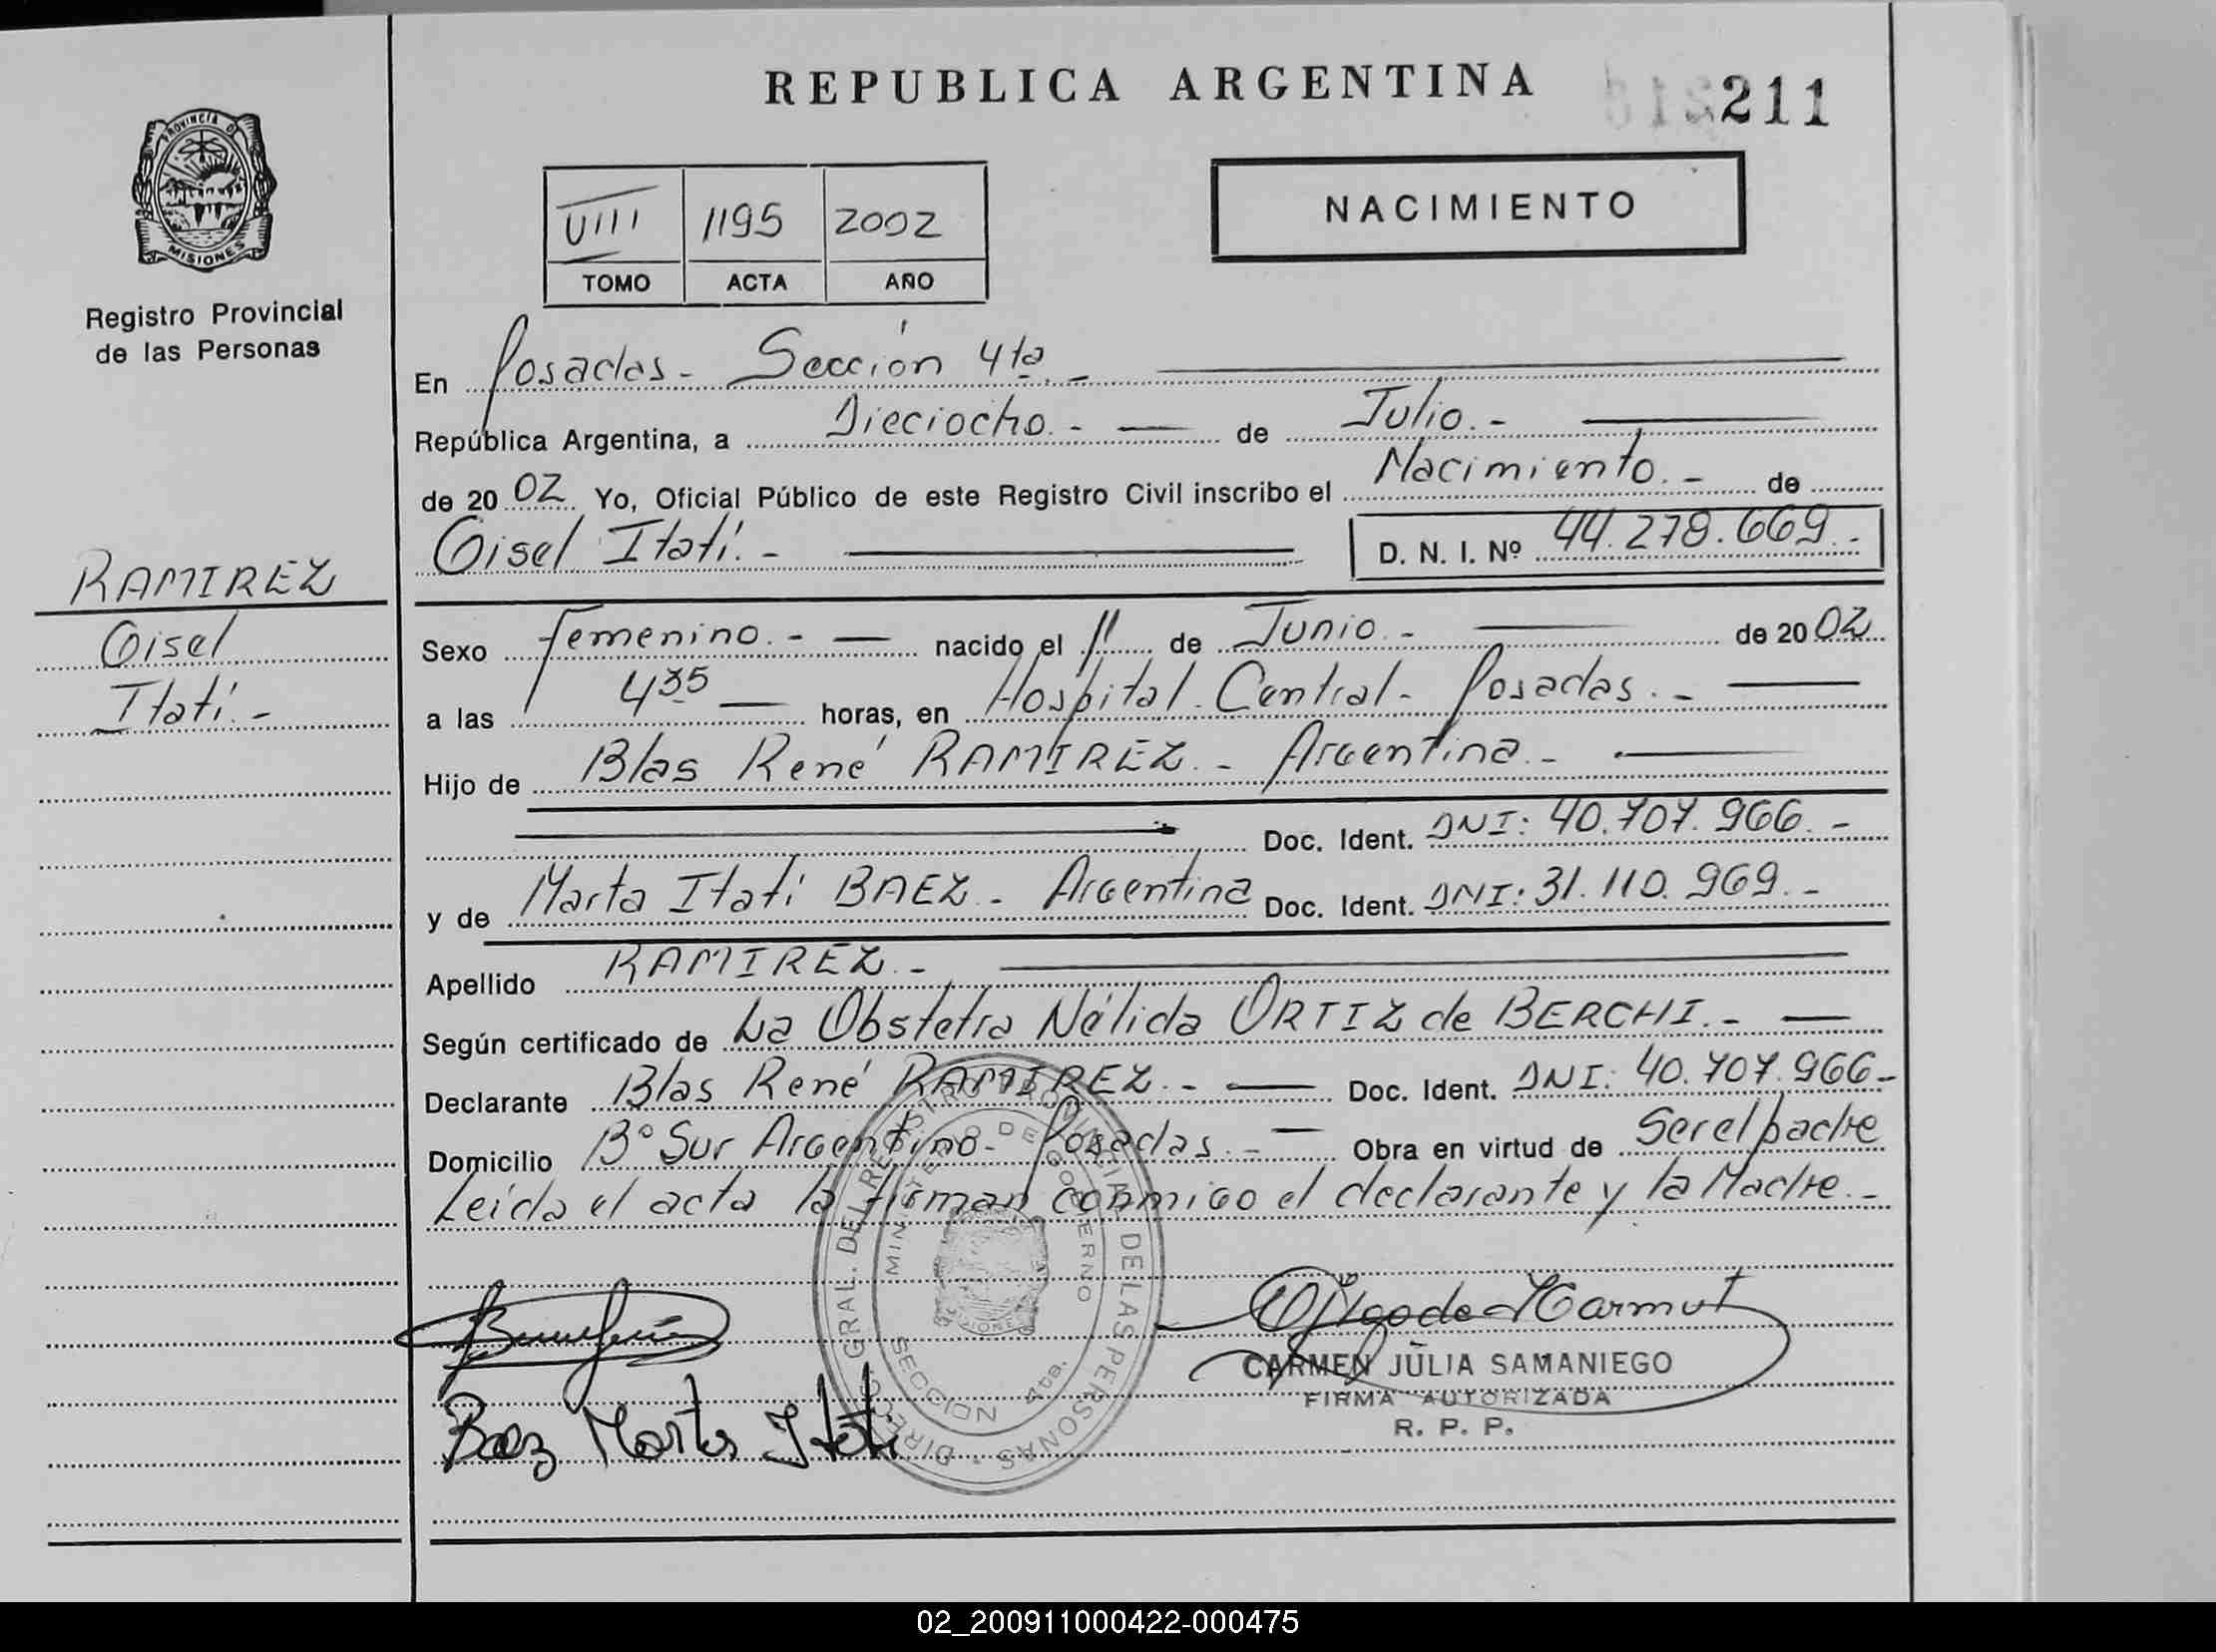 REPUBLICA ARGENTINA
211
PROVINCIA DE
MISIONES
Registro Provincial
de las Personas
VIII 1195 2002
TOMO ACTA AÑO
NACIMIENTO
En Posadas - Sección 4ta. -
República Argentina, a Dieciocho. - de Julio. -
de 2002 Yo, Oficial Público de este Registro Civil inscribo el Nacimiento. - de
Gisel Itatí. - D. N. I. Nº 44.278.669. -
RAMIREZ
Gisel
Itatí. -
Sexo Femenino. - nacido el 11 de Junio. - de 2002
a las 4 35 horas, en Hospital Central - Posadas. -
Hijo de Blas René RAMIREZ. - Argentina. -
Doc. Ident. DNI: 40.707.966. -
y de Marta Itatí BAEZ - Argentina Doc. Ident. DNI: 31.110.969. -
Apellido RAMIREZ. -
Según certificado de La Obstetra Nélida ORTIZ de BERCHI. -
Declarante Blas René RAMIREZ. - Doc. Ident. DNI: 40.707.966 -
Domicilio Bº Sur Argentino - Posadas. - Obra en virtud de Ser el padre
Leída el acta la firman conmigo el declarante y la Madre. -
DIRECC. GRAL. DEL REGISTRO PROVINCIAL DE LAS PERSONAS
MINISTERIO DE GOBIERNO
SECCION 4ta.
CARMEN JULIA SAMANIEGO
FIRMA AUTORIZADA
R. P. P.
Baez Marta Itatí
02_200911000422-000475